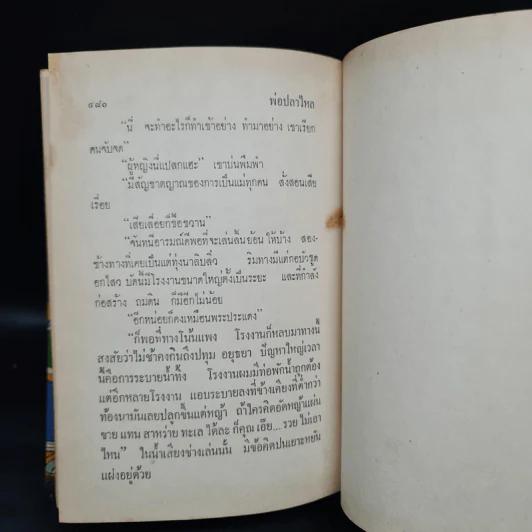 ๔๘๐ พ่อปลาไหล
“นี่ จะทำอะไรก็ทำเข้าอย่าง ทำมาอย่าง เขาเรียก
คนจับจด”
“ผู้หญิงนี่แปลกแฮะ” เขาบ่นพึมพำ
“มีสัญชาตญาณของการเป็นแม่ทุกคน สั่งสอนเสีย
เรื่อย
“เสียเลื่อยก็ซื้อขวาน”
“ฉันหนีอารมณ์ดีพอที่จะเล่นลิ้นย้อนให้บ้าง สอง-
ข้างทางที่เคยเป็นแต่ทุ่งนาลิบลิ่ว ริมทางมีแต่กอบัวชูด
อกไสว บัดนี้มีโรงงานขนาดใหญ่ตั้งเป็นระยะ และที่กำลัง
ก่อสร้าง ถมดิน ก็มีอีกไม่น้อย
“อีกหน่อยก็คงเหมือนพระประแดง”
“ก็พอที่ทางโน้นแพง โรงงานก็หลบมาทางนี้
สงสัยว่าไม่ช้าคงกินถึงปทุม อยุธยา ปัญหาใหญ่เวลา
นี้คือการระบายน้ำทิ้ง โรงงานผมมีท่อพักน้ำถูกต้อง
แต่อีกหลายโรงงาน แอบระบายลงที่ข้างเคียงที่ต่ำกว่า
ท้องนามันเลยปลูกขึ้นแต่หญ้า ถ้าใครคิดอัดหญ้าแผ่น
ขาย แทน สาหร่าย ทะเล ได้ละ ก็คุณ เอ๊ย... รวย ไม่เอา
ไหน” ในน้ำเสียงช่างเล่นนั้น มีข้อคิดปนเยาะหยัน
แฝงอยู่ด้วย